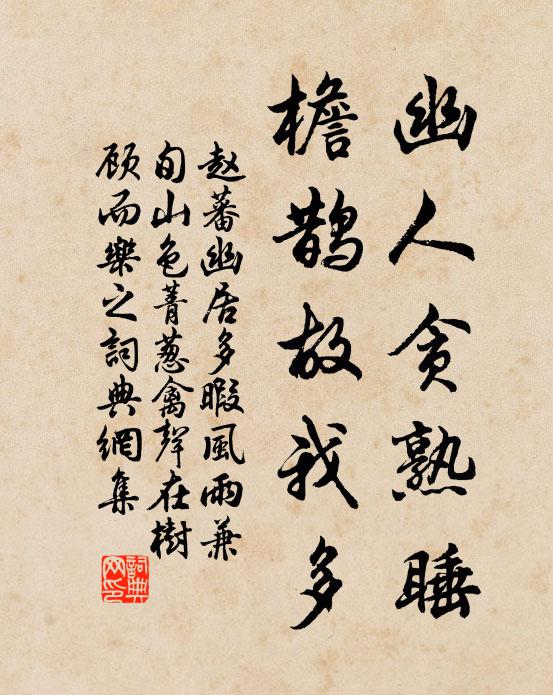 幽人贪熟睡
檐鹊故我多
赵蕃幽居多暇風雨兼
旬山色菁葱禽聲在樹
顾而樂之詞典網集
詞典网印